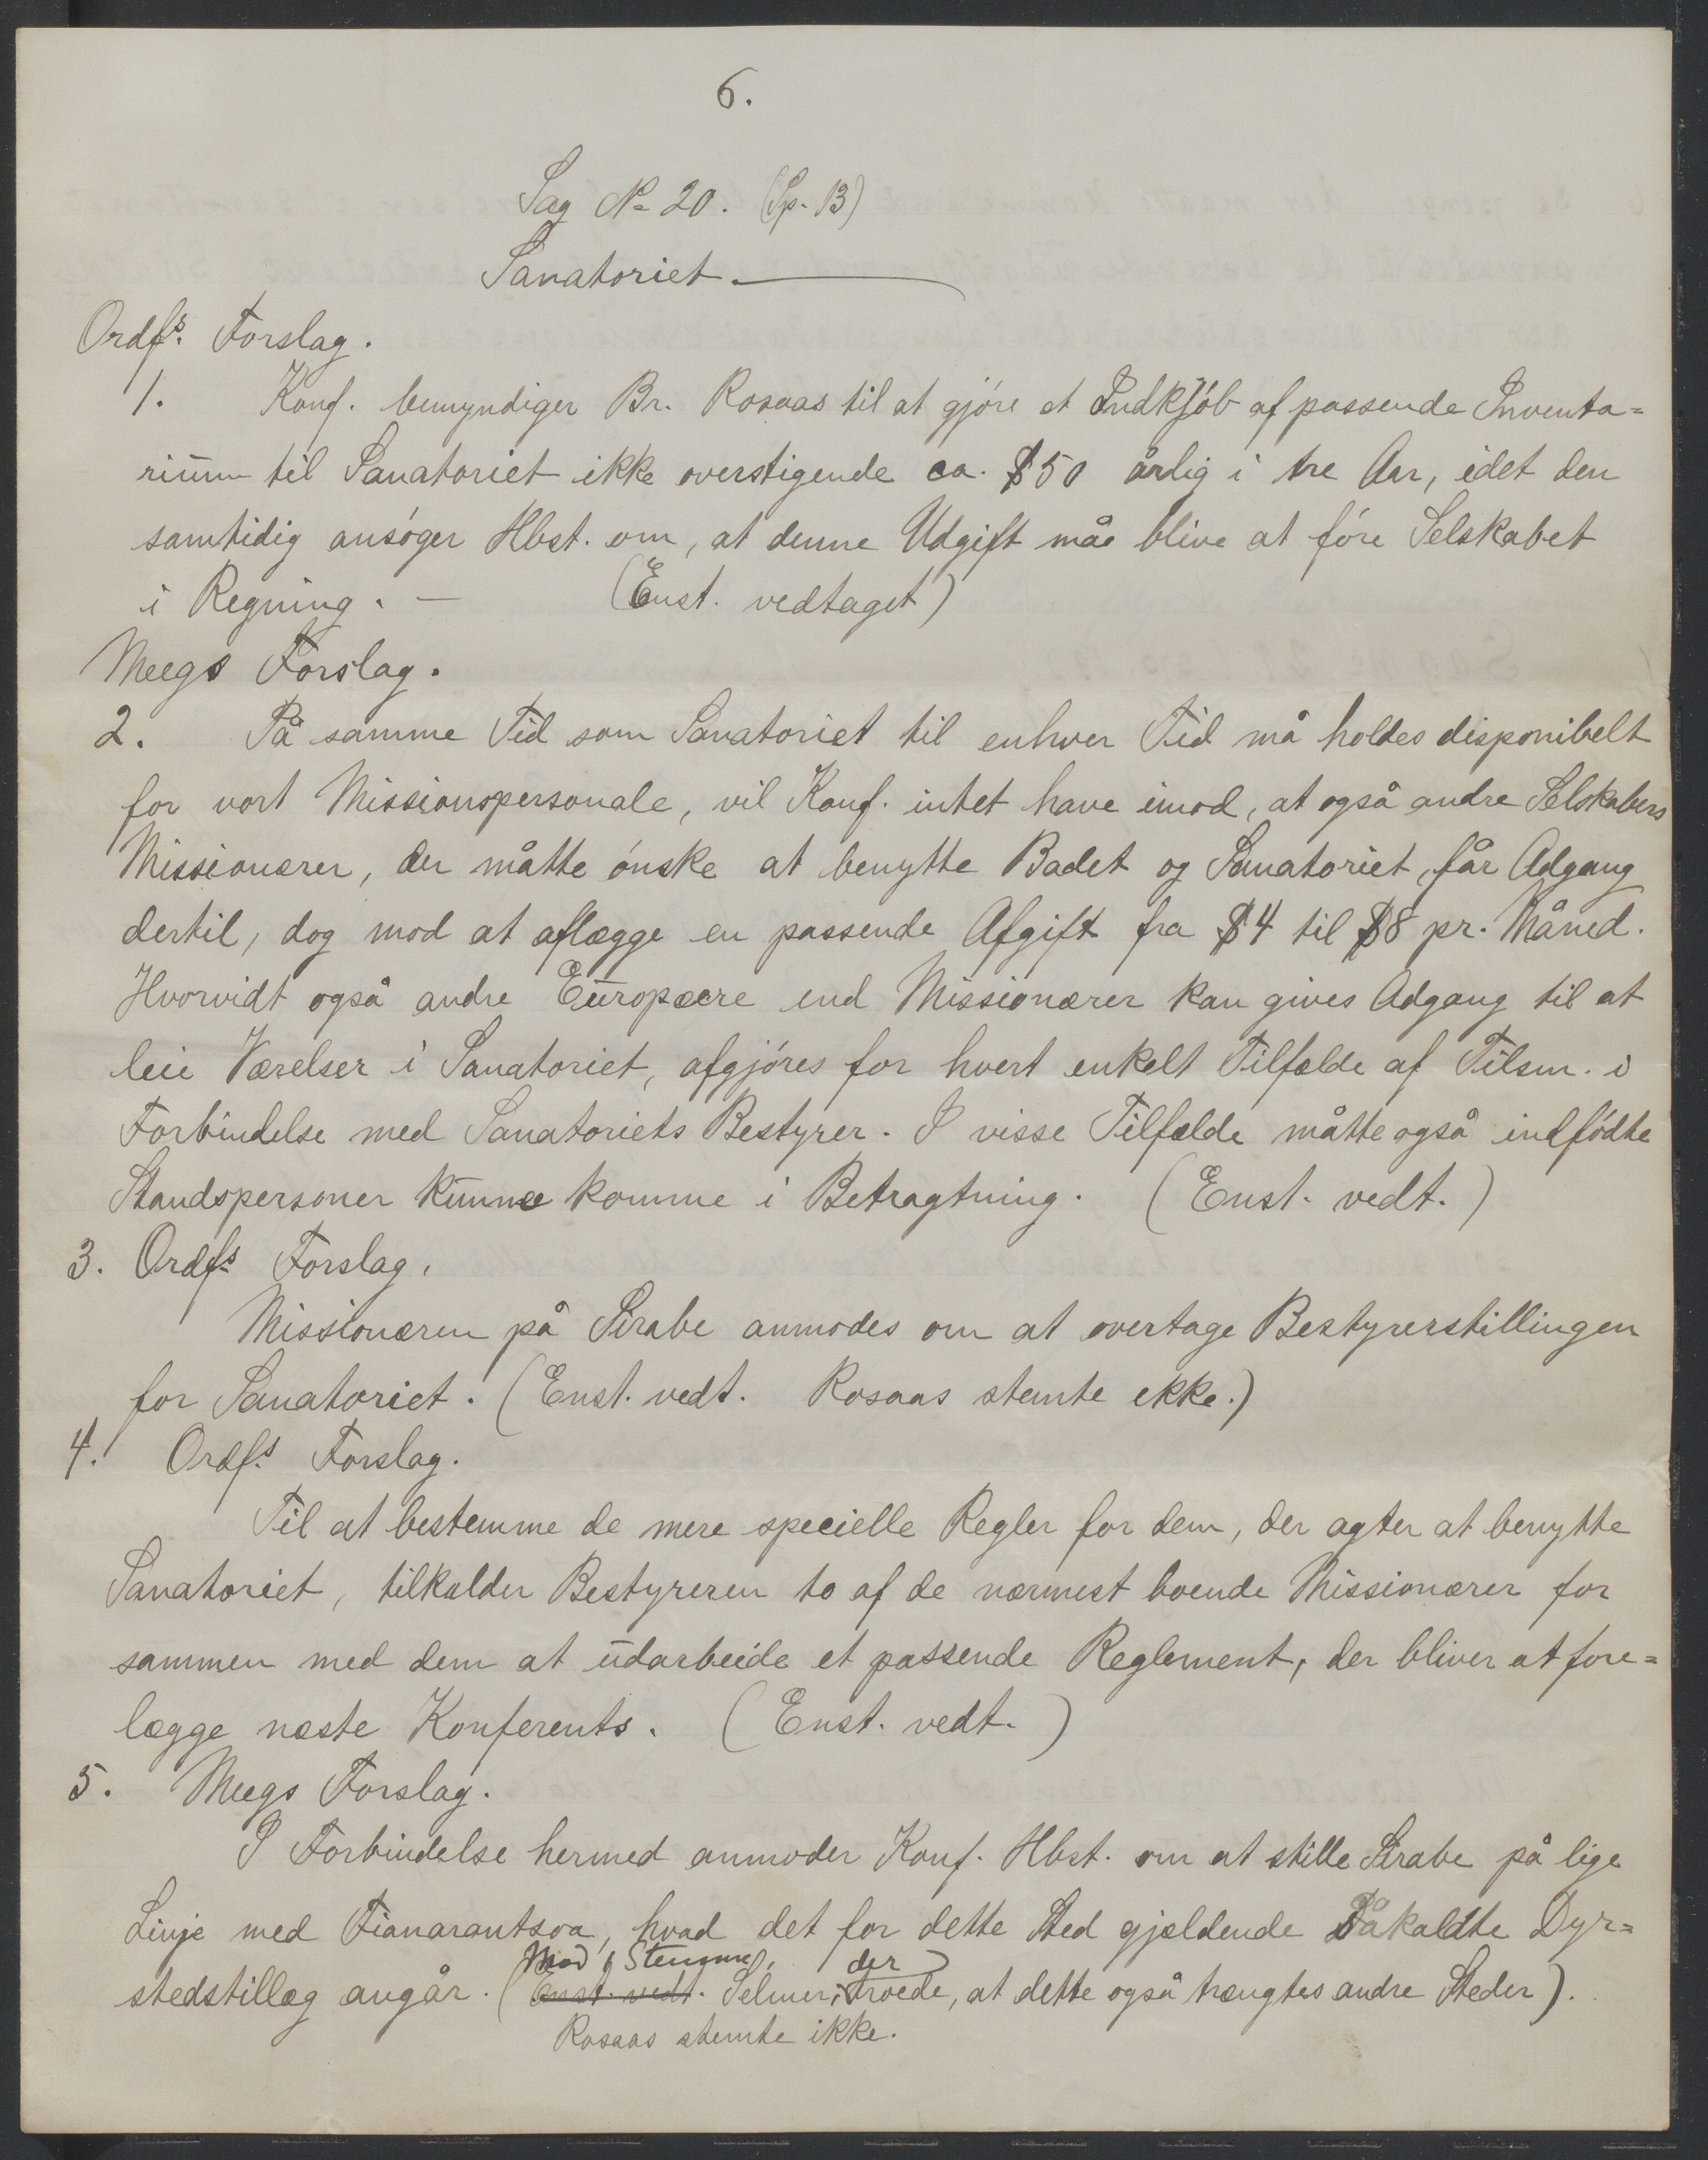 6.
Sag No 20. (Sp. 13)
Sanatoriet.
Ordfs. Forslag.
1. Konf. bemyndiger Br. Rosaas til at gjóre et Indkjób af passende Inventa=
rium til Sanatoriet ikke overstigende ca. $50 årlig i tre Aar, idet den
samtidig ansóger Hbst. om, at denne Udgift må blive at fóre Selskabet
i Regning. — (Enst. vedtaget)
Meegs Forslag.
2. På samme Tid som Sanatoriet til enhver Tid må holdes disponibelt
for vort Missionspersonale, vil Konf. intet have imod, at også andre Selskabers
Missionærer, der måtte ónske at benytte Badet og Sanatoriet, får Adgang
dertil, dog mod at aflægge en passende Afgift fra $4 til $8 pr. Måned.
Hvorvidt også andre Europæere end Missionærer kan gives Adgang til at
leie Værelser i Sanatoriet, afgjóres for hvert enkelt Tilfælde af Tilsm. i
Forbindelse med Sanatoriets Bestyrer. I visse Tilfælde måtte også indfódte
Standspersoner kunne komme i Betragtning. (Enst. vedt.)
3. Ordfs. Forslag.
Missionæren på Sirabe anmodes om at overtage Bestyrerstillingen
for Sanatoriet. (Enst. vedt. Rosaas stemte ikke.)
4. Ordfs. Forslag.
Til at bestemme de mere specielle Regler for dem, der agter at benytte
Sanatoriet, tilkalder Bestyreren to af de nærmest boende Missionærer for
sammen med dem at udarbeide et passende Reglement, der bliver at fore=
lægge næste Konferents. (Enst. vedt.)
5. Meegs Forslag.
I Forbindelse hermed anmoder Konf. Hbst. om at stille Sirabe på lige
Linje med Fianarantsoa, hvad det for dette Sted gjældende såkaldte Dyr=
Mod 1 Stemme, der
stedstillæg angår. (Enst. vedt. Selmer, troede, at dette også trængtes andre Steder).
Rosaas stemte ikke.